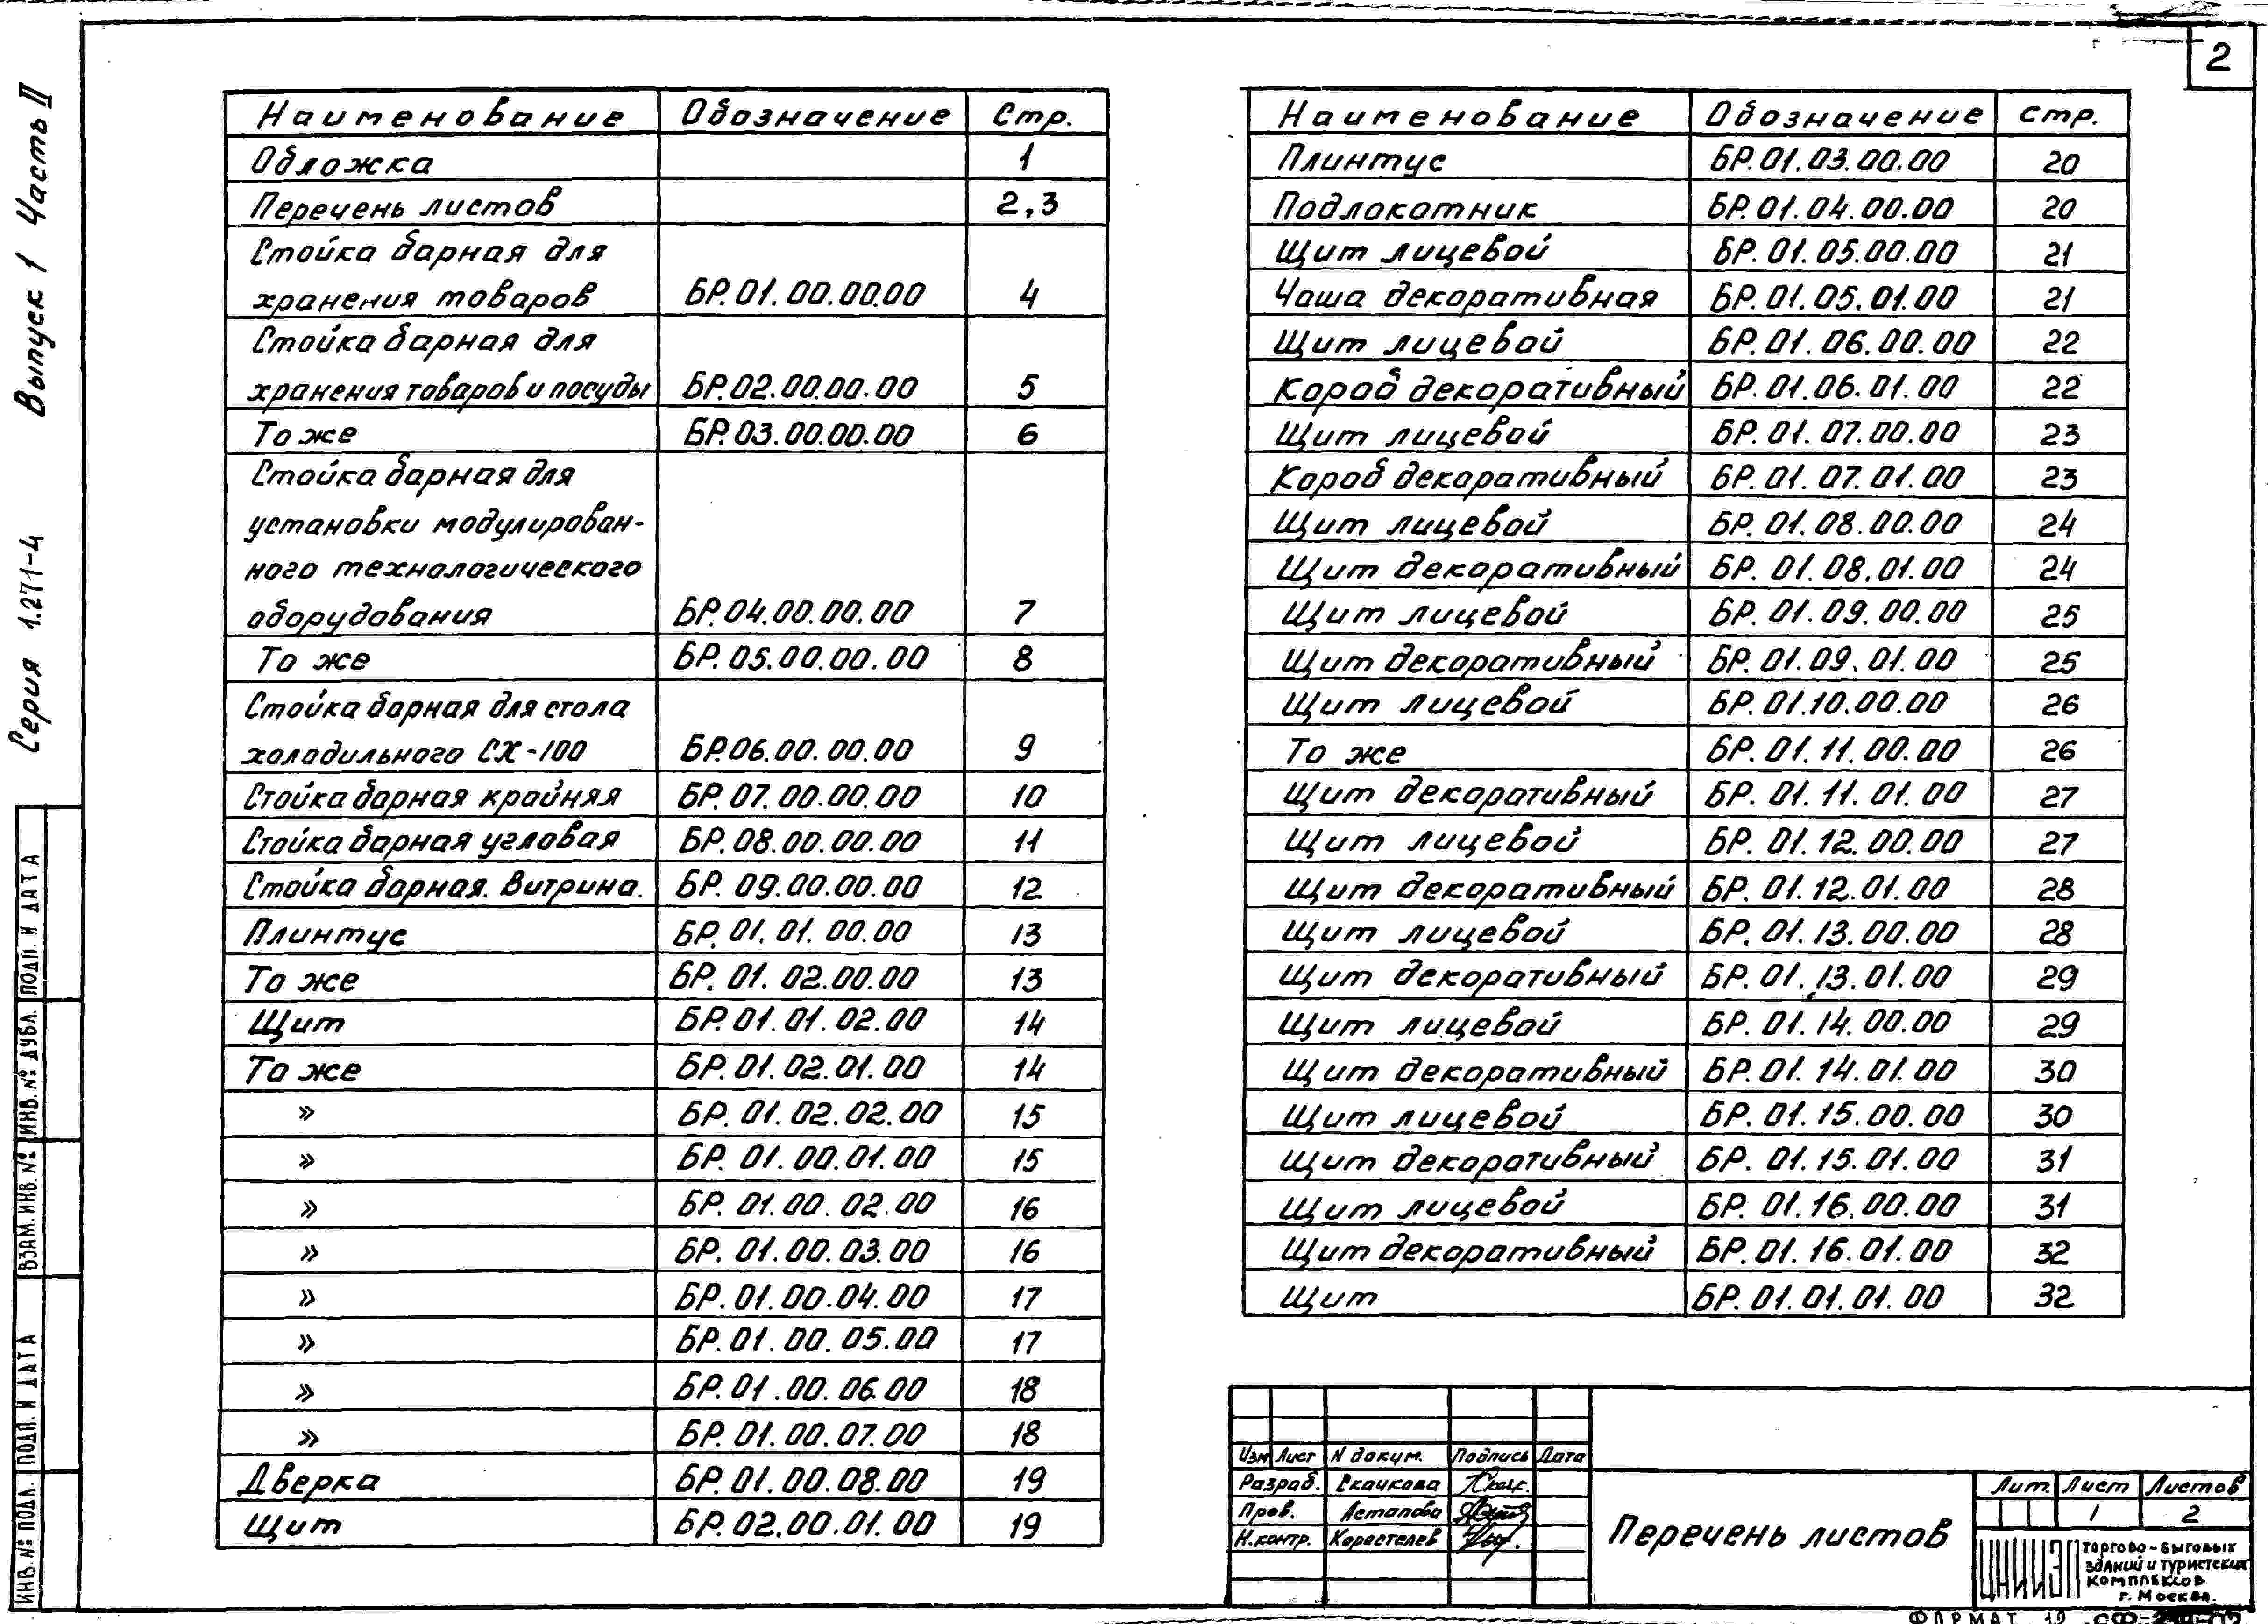 2
Серия 1.271-4 Выпуск 1 Часть II
Наименование Обозначение Стр.
Обложка 1
Перечень листов 2,3
Стойка барная для
хранения товаров БР.01.00.00.00 4
Стойка барная для
хранения товаров и посуды БР.02.00.00.00 5
То же БР.03.00.00.00 6
Стойка барная для
установки модулирован-
ного технологического
оборудования БР.04.00.00.00 7
То же БР.05.00.00.00 8
Стойка барная для стола
холодильного СХ-100 БР.06.00.00.00 9
Стойка барная крайняя БР.07.00.00.00 10
Стойка барная угловая БР.08.00.00.00 11
Стойка барная. Витрина. БР.09.00.00.00 12
Плинтус БР.01.01.00.00 13
То же БР.01.02.00.00 13
Щит БР.01.01.02.00 14
То же БР.01.02.01.00 14
» БР.01.02.02.00 15
» БР.01.00.01.00 15
» БР.01.00.02.00 16
» БР.01.00.03.00 16
» БР.01.00.04.00 17
» БР.01.00.05.00 17
» БР.01.00.06.00 18
» БР.01.00.07.00 18
Дверка БР.01.00.08.00 19
Щит БР.02.00.01.00 19
Наименование Обозначение стр.
Плинтус БР.01.03.00.00 20
Подлокотник БР.01.04.00.00 20
Щит лицевой БР.01.05.00.00 21
Чаша декоративная БР.01.05.01.00 21
Щит лицевой БР.01.06.00.00 22
Короб декоративный БР.01.06.01.00 22
Щит лицевой БР.01.07.00.00 23
Короб декоративный БР.01.07.01.00 23
Щит лицевой БР.01.08.00.00 24
Щит декоративный БР.01.08.01.00 24
Щит лицевой БР.01.09.00.00 25
Щит декоративный БР.01.09.01.00 25
Щит лицевой БР.01.10.00.00 26
То же БР.01.11.00.00 26
Щит декоративный БР.01.11.01.00 27
Щит лицевой БР.01.12.00.00 27
Щит декоративный БР.01.12.01.00 28
Щит лицевой БР.01.13.00.00 28
Щит декоративный БР.01.13.01.00 29
Щит лицевой БР.01.14.00.00 29
Щит декоративный БР.01.14.01.00 30
Щит лицевой БР.01.15.00.00 30
Щит декоративный БР.01.15.01.00 31
Щит лицевой БР.01.16.00.00 31
Щит декоративный БР.01.16.01.00 32
Щит БР.01.01.01.00 32
Изм Лист N докум. Подпись Дата
Разраб. Скачкова
Пров. Астапова
Н.контр. Коростелев
Перечень листов
Лит. Лист Листов
1 2
ЦНИИЭП торгово-бытовых
зданий и туристских
комплексов
г. Москва.
ФОРМАТ 12
ИНВ. № ПОДЛ. ПОДП. И ДАТА ВЗАМ. ИНВ. № ИНВ. № ДУБЛ. ПОДП. И ДАТА